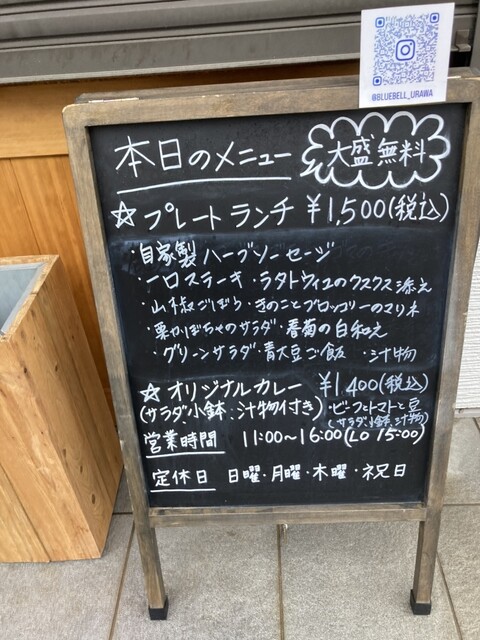 @BLUEBELL_URAWA
本日のメニュー
大盛無料
☆プレートランチ ¥1,500(税込)
・自家製ハーブソーセージ
・一口ステーキ・ラタトゥイユのクスクス添え
・山椒ごぼう・きのことブロッコリーのマリネ
・栗かぼちゃのサラダ・春菊の白和え
・グリーンサラダ・青大豆ご飯 ・汁物
☆オリジナルカレー ¥1,400(税込)
(サラダ・小鉢・汁物付き)・ビーフとトマトと豆
(サラダ、小鉢、汁物)
営業時間 11:00~16:00(LO 15:00)
定休日 日曜・月曜・木曜・祝日